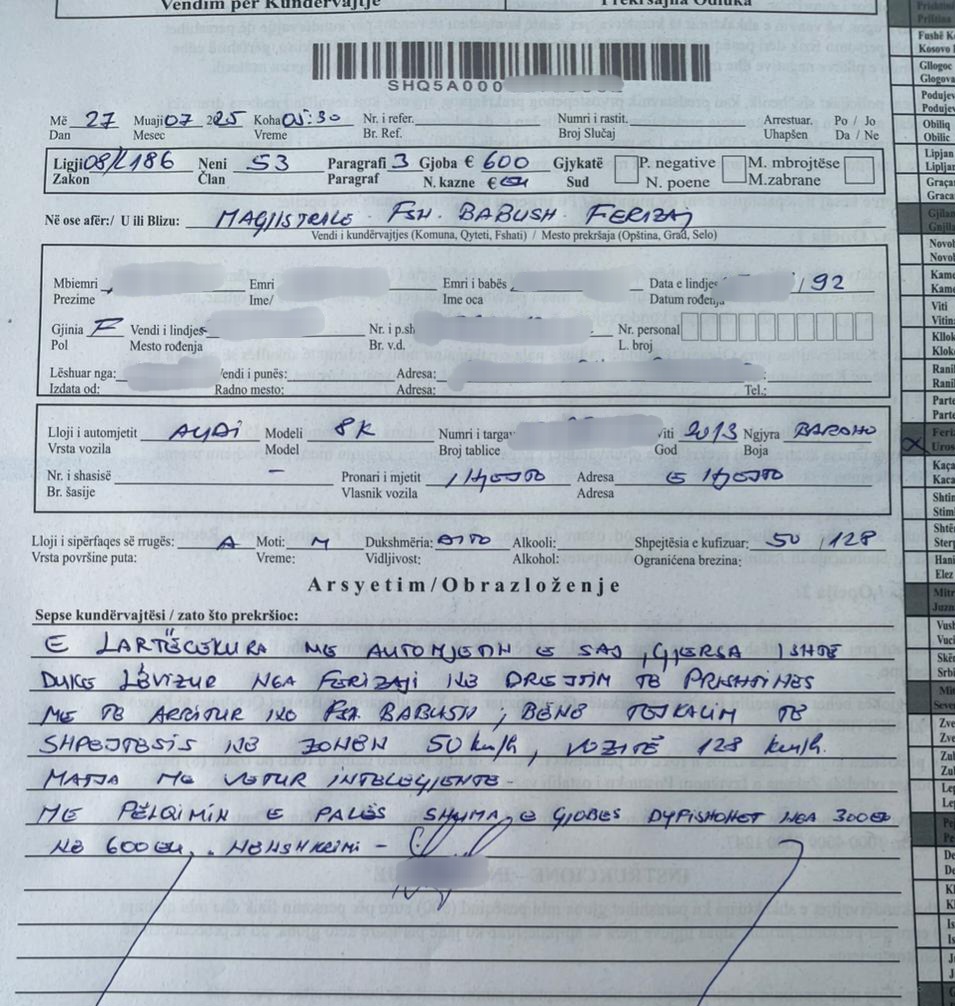 Vendim për Kundërvajtje Prekršajna Odluka
SHQ5A000
Më 27 Muaji 07 2025 Koha 05:30 Nr. i refer. Numri i rastit. Arrestuar. Po / Jo
Dan Mesec Vreme Br. Ref. Broj Slučaj Uhapšen Da / Ne
Ligji 08/L186 Neni 53 Paragrafi 3 Gjoba € 600 Gjykatë P. negative M. mbrojtëse
Zakon Član Paragraf N. kazne € Sud N. poene M.zabrane
Në ose afër:/ U ili Blizu: MAGJISTRALE - FSH. BABUSH - FERIZAJ
Vendi i kundërvajtjes (Komuna, Qyteti, Fshati) / Mesto prekršaja (Opština, Grad, Selo)
Mbiemri Emri Emri i babës Data e lindjes /92
Prezime Ime/ Ime oca Datum rođenja
Gjinia F Vendi i lindjes Nr. i p.sh Nr. personal
Pol Mesto rođenja Br. v.d. L. broj
Lëshuar nga: Vendi i punës: Adresa:
Izdata od: Radno mesto: Adresa: Tel.:
Lloji i automjetit AUDI Modeli 8K Numri i targav Viti 2013 Ngjyra BARDHO
Vrsta vozila Model Broj tablice God Boja
Nr. i shasisë - Pronari i mjetit Adresa
Br. šasije Vlasnik vozila Adresa
Lloji i sipërfaqes së rrugës: A Moti: M Dukshmëria: Alkooli: Shpejtësia e kufizuar: 50 / 128
Vrsta površine puta: Vreme: Vidljivost: Alkohol: Ograničena brezina:
Arsyetim/Obrazloženje
Sepse kundërvajtësi / zato što prekršioc:
E LARTËCEKURA ME AUTOMJETIN E SAJ, GJERSA ISHTE
DUKE LËVIZUR NGA FERIZAJI NË DREJTIM TË PRISHTINËS
ME TË ARRITUR NË FSH. BABUSH, BËNË TEJKALIM TË
SHPEJTËSIS NË ZONËN 50 km/h, VOZITË 128 km/h.
MATJA ME VETUR INTELEGJENTE -
ME PËLQIMIN E PALËS SHUMA E GJOBËS DYFISHOHET NGA 300EU
NË 600 EU. NËNSHKRIMI -
Fushë K
Kosovo
Gllogoc
Glogova
Podujev
Podujev
Obiliq
Obilic
Lipjan
Lipljan
Graça
Graca
Gjilan
Novob
Novob
Kame
Kame
Viti
Vitin
Kllok
Klok
Ranil
Ranil
Parte
Parte
X Feriz
Uros
Kaça
Kaca
Shtin
Shtë
Hani
Elez
Mitr